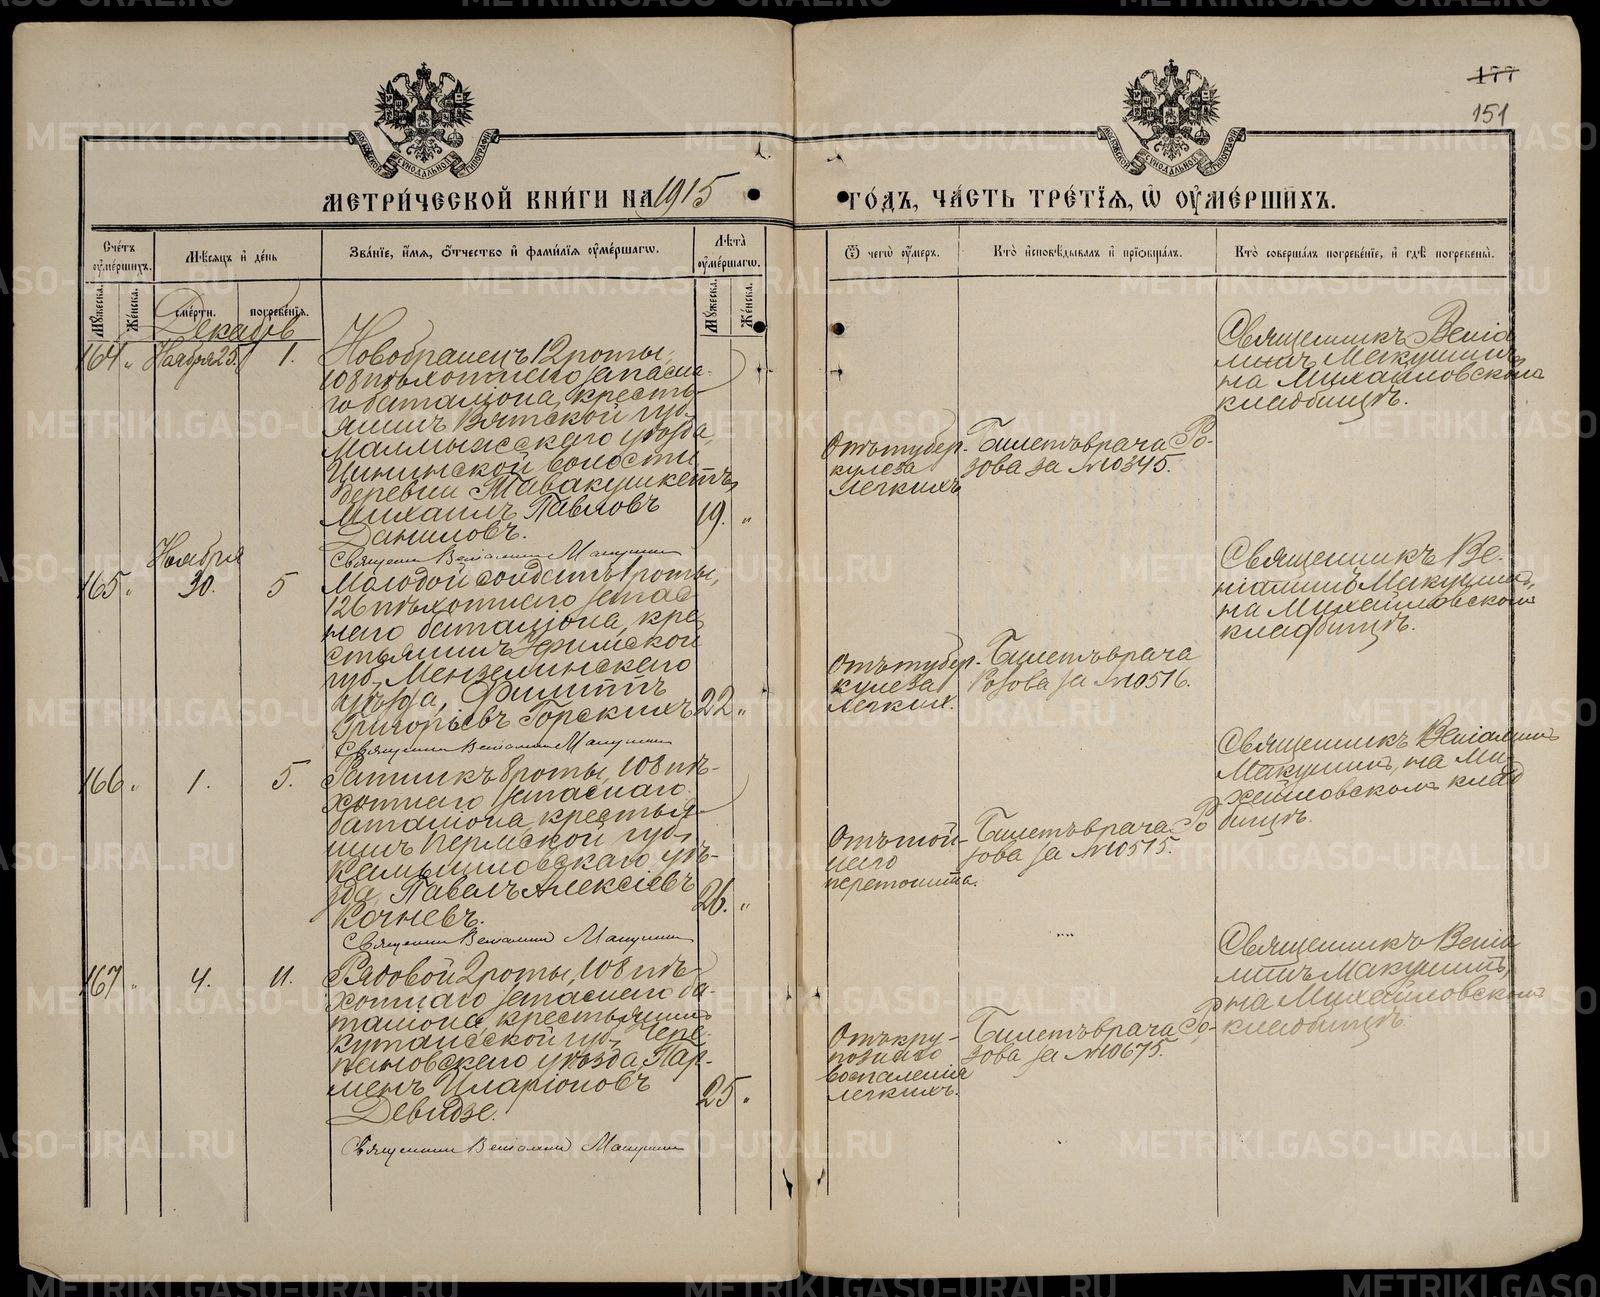 177
151
МЕТРИ́ЧЕСКОЙ КНИ́ГИ НА 1915
ГО́ДЪ, ЧА́СТЬ ТРЕ́ТІѦ, Ѡ ОУМЕ́РШИХЪ.
Сче́тъ оумершихъ.
Мѣсѧцъ и де́нь
Зва́нїе, и́мѧ, о́тчество и фами́лїѧ оуме́ршагѡ.
Лѣта̀ оуме́ршагѡ.
Ѿ чегѡ̀ оу́меръ.
Кто̀ исповѣ́дывалъ и прїѡбща́лъ.
Кто̀ соверша́лъ погребе́нїе, и гдѣ̀ погребены̀.
Мꙋжеска.
Же́нска.
сме́рти.
погребе́нїѧ.
Мꙋжеска.
Же́нска.
Декабрь
164 " Ноября 25. 1.
Новобранецъ 12 роты,
108 пѣхотнаго запасна-
го баталіона, кресть-
янинъ Вятской губ.,
Малмыжскаго уѣзда,
волости
деревни
Михаилъ Павловъ
Даниловъ.
19. "
Священникъ Веніаминъ Макушинъ
Отъ тубер-
кулеза
легкихъ
Билетъ врача Ро-
зова за №10345.
Священникъ Веніа
минъ Макушинъ,
на Михайловскомъ
кладбищѣ.
Ноября
165 " 30. 5
Молодой солдатъ 1 роты,
126 пѣхотнаго запас
наго баталіона, кре
стьянинъ Уфимской
губ., Мензелинскаго
уѣзда, Филиппъ
Григорьевъ Горскихъ
22 "
Священникъ Веніаминъ Макушинъ
Отъ тубер-
кулеза
легких.
Билетъ врача
Розова за №10516.
Священникъ Ве-
ніаминъ Макушинъ,
на Михайловскомъ
кладбищѣ.
166 " 1. 5.
Ратникъ 8 роты, 108 пѣ-
хотнаго запаснаго
баталіона, крестья-
нинъ Пермской губ.,
Камышловскаго уѣз-
да, Павелъ Алексіевъ
Кочневъ.
26. "
Священникъ Веніаминъ Макушинъ
Отъ гной-
наго
перетонита.
Билетъ врача Ро
зова за №10515.
Священникъ Веніаминъ
Макушинъ, на Ми-
хайловскомъ клад
бищѣ.
167 " 4. 11.
Рядовой 2 роты, 108 пѣ-
хотнаго запаснаго ба-
таліона, крестьянинъ
Кутаисской губ.,
уѣзда, Пар-
менъ Иларіоновъ
Девидзе.
25 "
Священникъ Веніаминъ Макушинъ
Отъ кру-
познаго
воспаленія
легкихъ.
Билетъ врача Ро-
зова за №10675.
Священникъ Веніа
минъ Макушинъ,
на Михайловскомъ
кладбищѣ.
METRIKI.GASO-URAL.RU